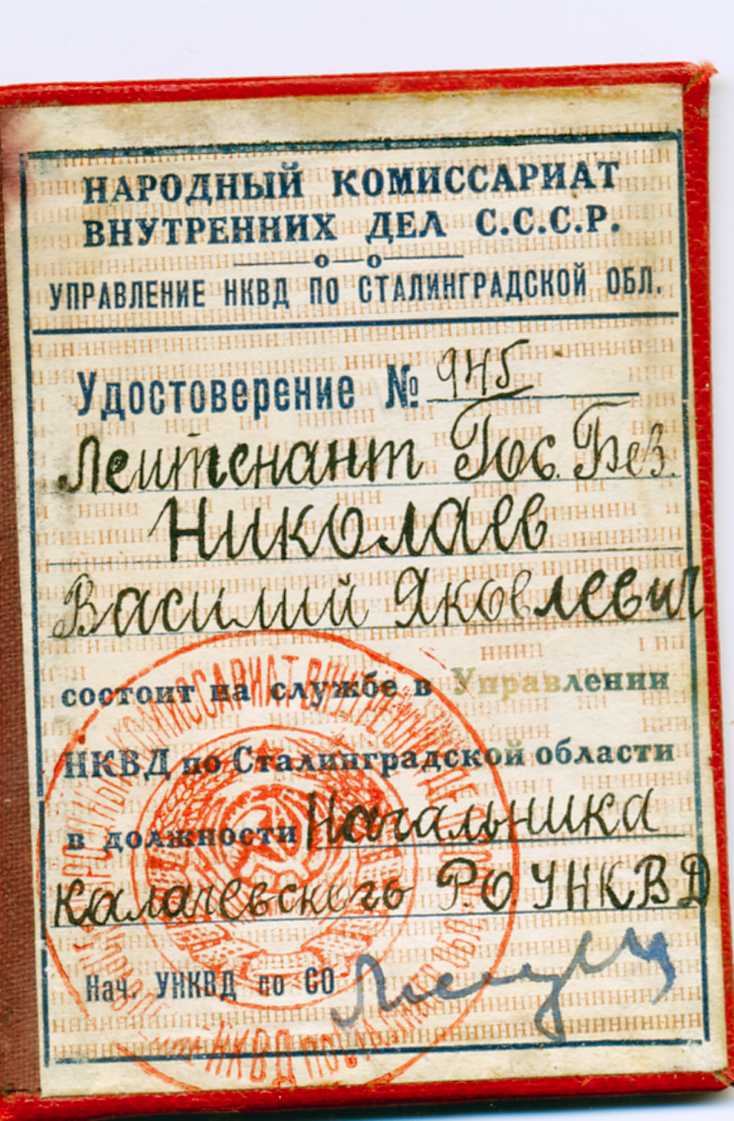 НАРОДНЫЙ КОМИССАРИАТ
ВНУТРЕННИХ ДЕЛ С.С.С.Р.
УПРАВЛЕНИЕ НКВД ПО СТАЛИНГРАДСКОЙ ОБЛ.
Удостоверение № 945
Лейтенант Гос. Без.
Николаев
Василий Яковлевич
состоит на службе в Управлении
НКВД по Сталинградской области
в должности Начальника
Калачевского РО УНКВД
Нач. УНКВД по СО